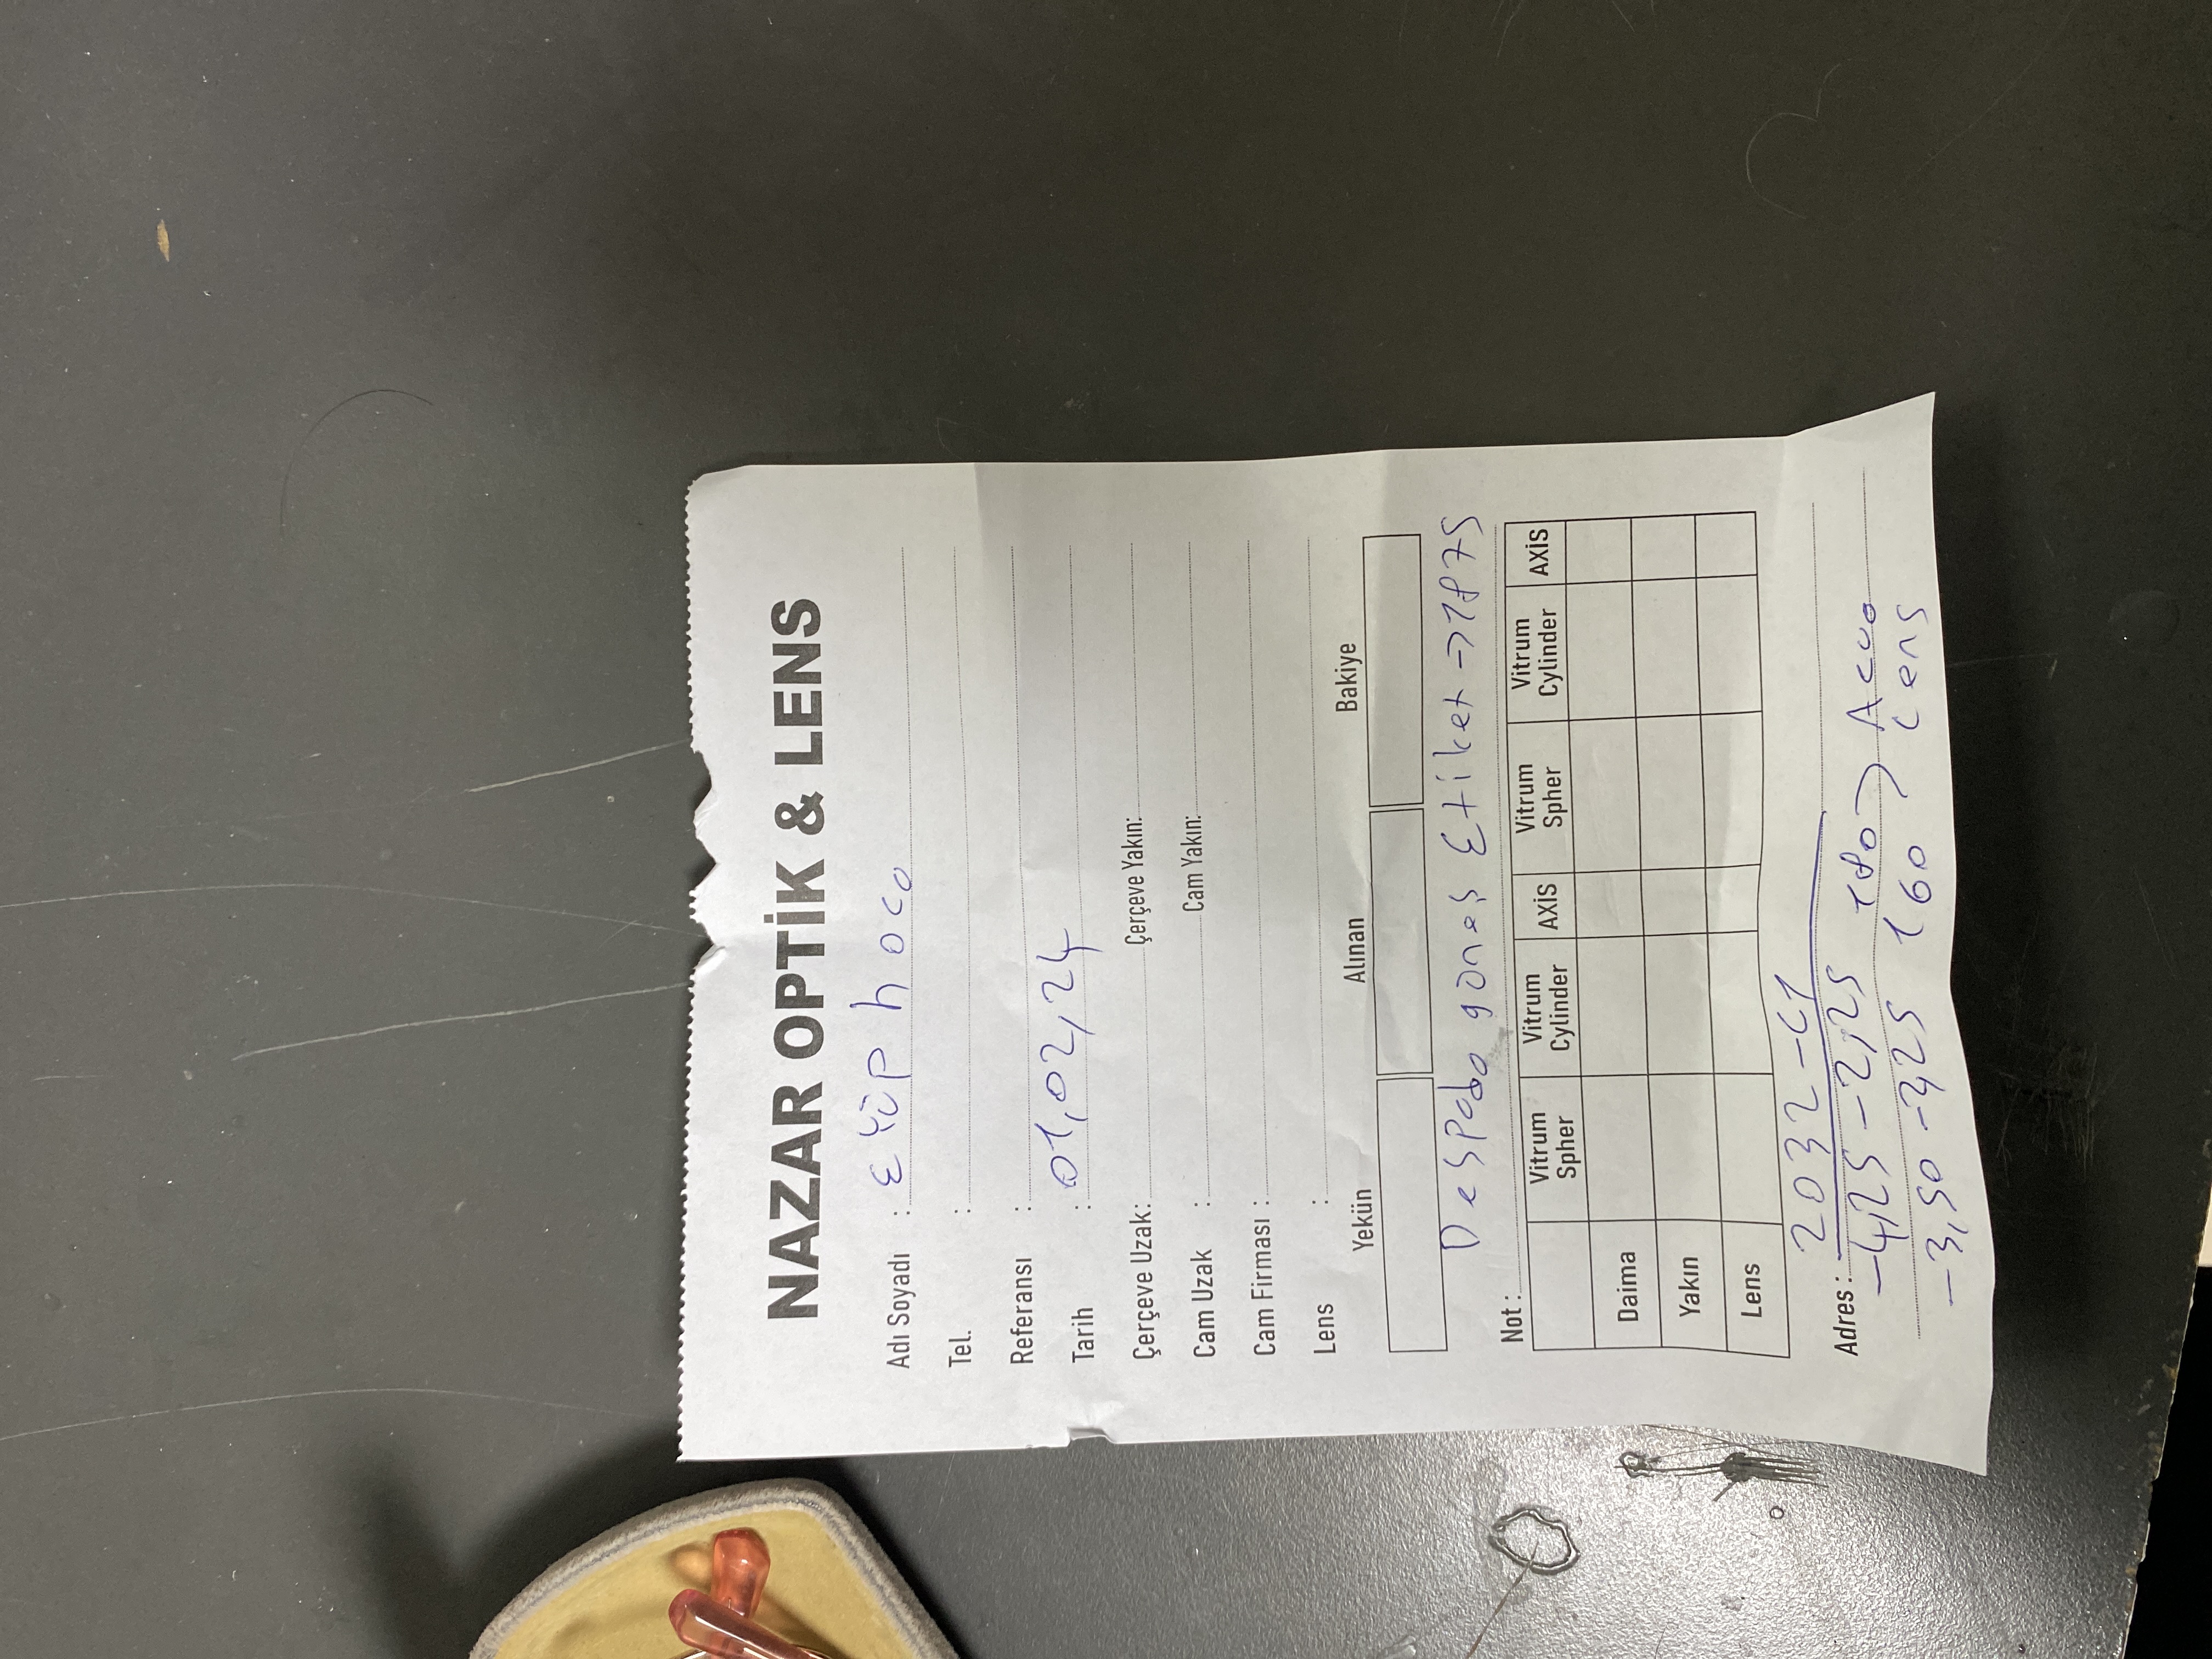 NAZAR OPTİK & LENS
Adı Soyadı : Eyüp hoca
Tel. :
Referansı :
Tarih : 01,02,24
Çerçeve Uzak: Çerçeve Yakın:
Cam Uzak : Cam Yakın:
Cam Firması :
Lens :
Yekün Alınan Bakiye
Despada güneş Etiket → 1875
Not :
Vitrum Spher Vitrum Cylinder AXİS Vitrum Spher Vitrum Cylinder AXİS
Daima
Yakın
Lens
2032-C1
Adres :
-4,25 -2,25 180 > Acuo
-3,50 -2,25 160 Lens